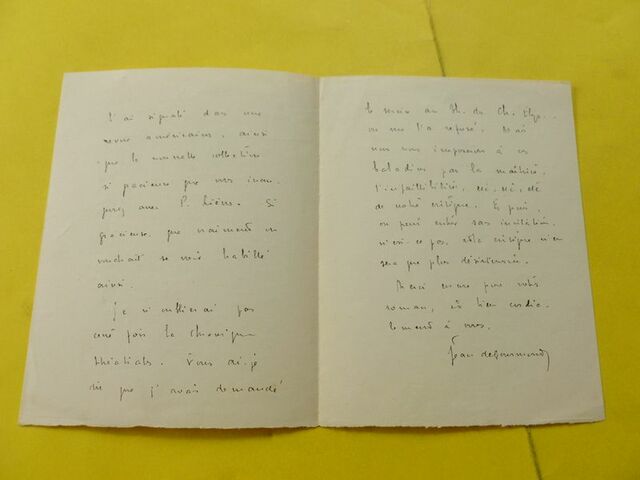 J'ai signalé dans une
revue américaine, ainsi
que la nouvelle collection
si précieuse que vous inau-
gurez avec P. Liévre. Si
gracieuse que vraiment on
voudrait se voir habillé
ainsi.
Je n'oublierai pas
cette fois la chronique
théâtrale. Vous ai-je
dit que j'avais demandé
le service au Th. de Ch. Elys..
on me l'a refusé. Mais
nous nous imposerons à ces
baladins par la maîtrise,
l'infaillibilité, etc, etc, etc
de notre critique. Et puis
on peut entrer sans invitation,
n'est-ce pas, cette critique n'en
sera que plus désintéressée.
Merci encore pour votre
roman, et bien cordia-
lement à vous.
Jean de Gourmont